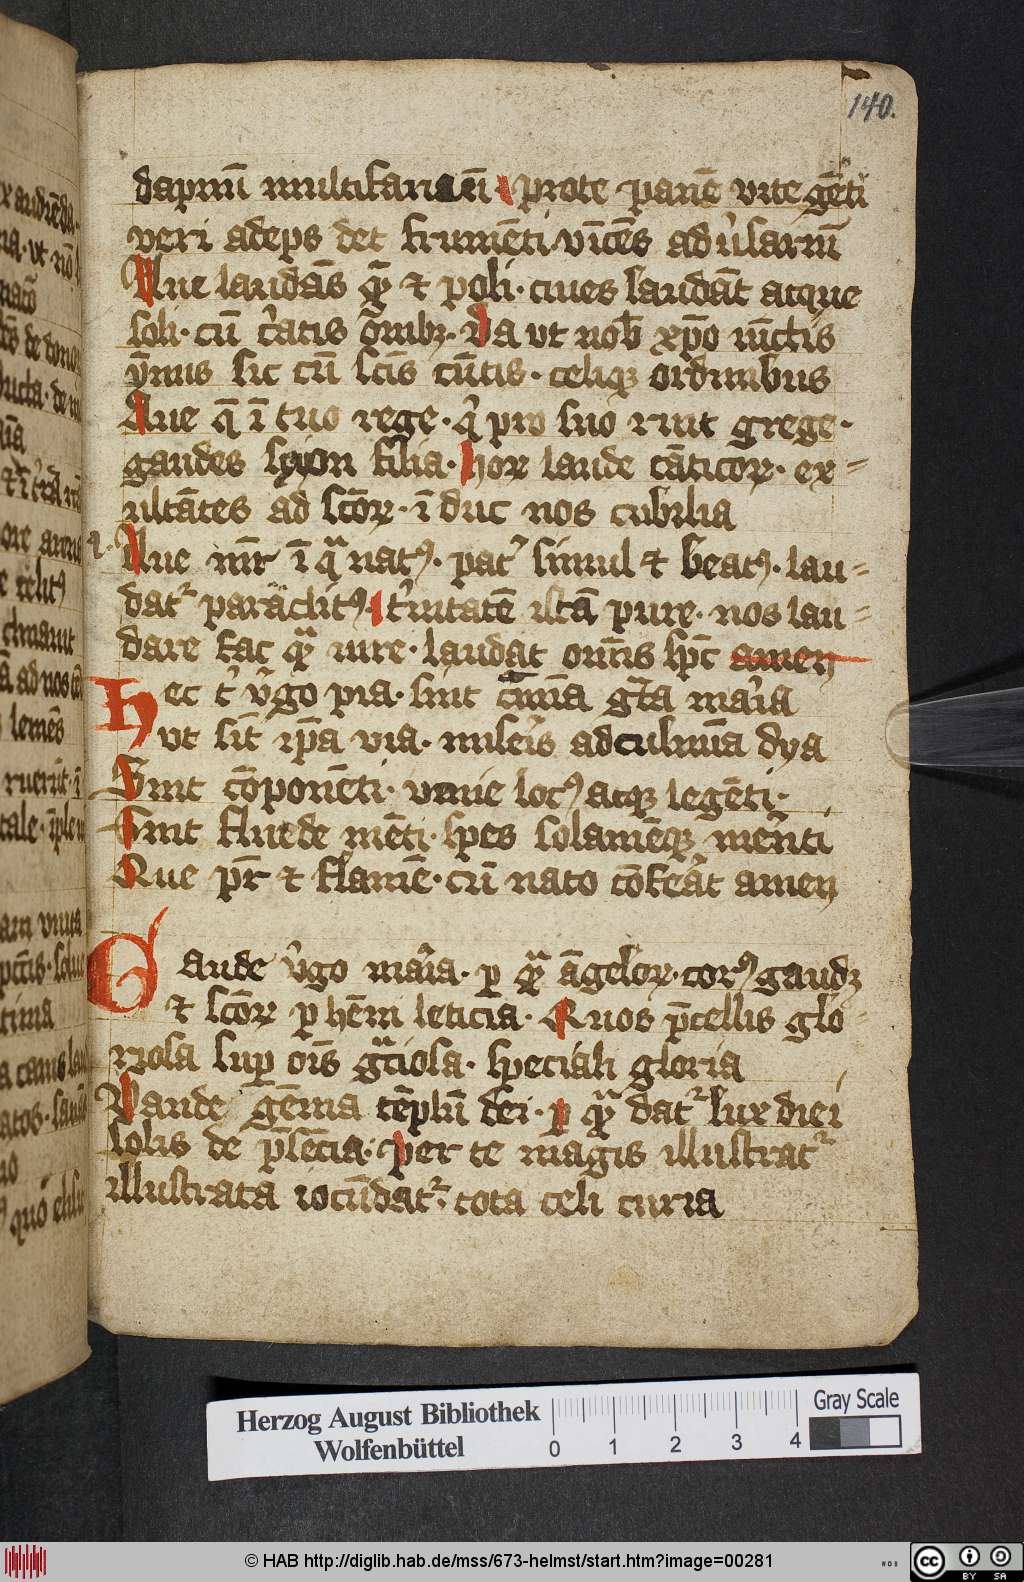 140.
dapinū multifariaū prote panē vite gēti
veri adeps det frumēti vīcēs ad ùlarıū
Aue laudās q̄ & poli · ciues laudāt atque
soli · cū c̓atis ōnibꝫ · Da vt nob̄ xp̄o iūctis
ȳnus sic cū sc̄is cūctis · celiqꝫ ordinibus
Aue q̄ ī tuo rege · q̓ pro suo ruit grege ·
gaudes syon filia · hoꝝ laude cāticoꝝ · ex=
ultātes ad sc̄oꝝ · ī duc nos cubilia
Aue mr̄ ī qͣ natꝰ · pat̓ simul & beatꝰ · lau=
dat᷑ paraclitꝰ · t̓nitatē istā pure · nos lau=
dare fac qͣ iure · laudat om̄is sp̄c amen
Hec t̓ v̓go pia · sint cīmīa gr̄a mar̓ia
vt sīt ip̄a via · mīsel̓is ad culmīa dya
Sint cōponēti · venie locꝰ atqꝫ legēti ·
Sint fluede mēti · spes solamēqꝫ mer̄ēti
Que pr̄ & flamē · cū nato cōfeāt amen
Gaude v̓go mar̓ia · ꝑ qͣ āgeloꝝ · corꝰ gaudꝫ
& sc̄oꝝ ꝑhēni leticia · Quos p̄cellis glo=
riosa suꝑ oīs gͣciosa · speciali gloria
Gaude gēma tēplū dei · ꝑ qͣ dat᷑ lux diei
solis de p̄sēcia · per te magis illustrat᷑
illustrata iocūdat᷑ · tota celi curia
Herzog August Bibliothek
Wolfenbüttel
0 1 2 3 4
Gray Scale
© HAB http://diglib.hab.de/mss/673-helmst/start.htm?image=00281
WDB
cc BY SA